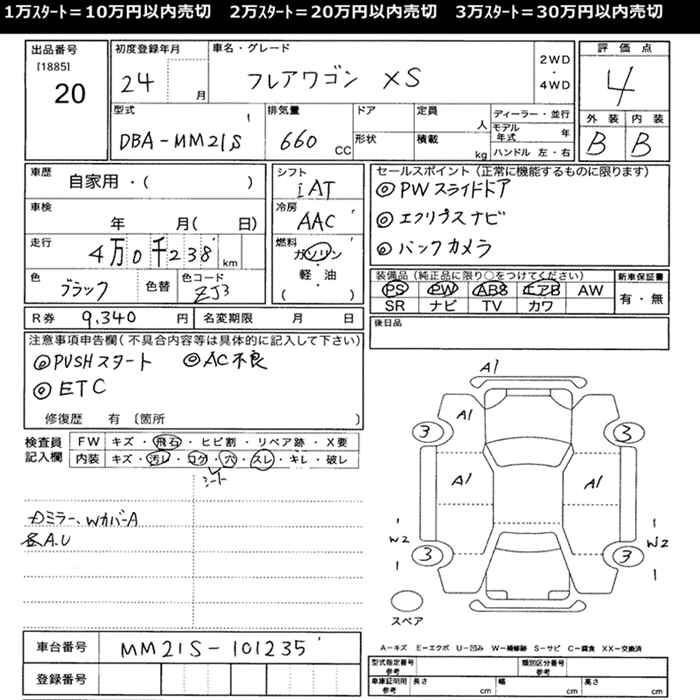 1万ｽﾀｰﾄ＝10万円以内売切　2万ｽﾀｰﾄ＝20万円以内売切　3万ｽﾀｰﾄ＝30万円以内売切
出品番号
[1885]
20
初度登録年月
24 月
車名・グレード
フレアワゴン XS
2WD
・
4WD
評価点
4
外装 内装
B B
型式
DBA-MM21S
排気量
660 CC
ドア
形状
定員 人
積載 kg
ディーラー・並行
モデル年式 年
ハンドル 左・右
車歴
自家用・( )
車検
年 月( 日)
走行
4万0千238 km
色
ブラック
色替
色コード
ZJ3
シフト
iAT
冷房
AAC
燃料
ガソリン
軽・油
( )
セールスポイント（正常に機能するものに限ります）
◎PWスライドドア
◎エクリプスナビ
◎バックカメラ
装備品（純正品に限り○をつけてください）
PS PW ABS エアB AW
SR ナビ TV カワ
新車保証書
有・無
R券 9,340 円
名変期限 月 日
後日品
注意事項申告欄（不具合内容等は具体的に記入して下さい）
◎PUSHスタート ◎AC不良
◎ETC
修復歴 有 〔箇所 〕
検査員
記入欄
FW キズ・飛石・ヒビ割・リペア跡・X要
内装 キズ・汚レ・コゲ・穴・スレ・キレ・破レ
シート
ミラー、WカバーA
各A.U
A1
A1
3 3
A1 A1
W2 W2
3 3
スペア
車台番号
MM21S-101235
登録番号
A－キズ E－エクボ U－凹み W－補修跡 S－サビ C－腐食 XX－交換済
型式指定番号
参考
類別区分番号
参考
車庫証明用
参考
長さ cm
幅 cm
高さ cm